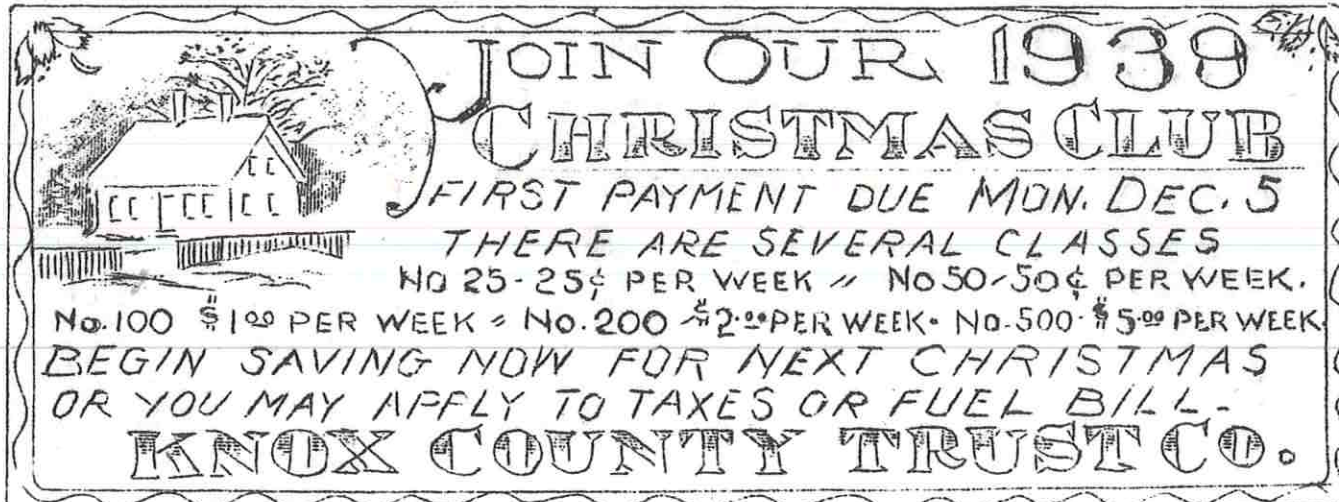 JOIN OUR 1939
CHRISTMAS CLUB
FIRST PAYMENT DUE MON. DEC. 5
THERE ARE SEVERAL CLASSES
NO 25-25¢ PER WEEK " NO 50-50¢ PER WEEK.
No.100 $1.00 PER WEEK " No.200 - $2.00 PER WEEK. No.500. $5.00 PER WEEK.
BEGIN SAVING NOW FOR NEXT CHRISTMAS
OR YOU MAY APPLY TO TAXES OR FUEL BILL-
KNOX COUNTY TRUST CO.